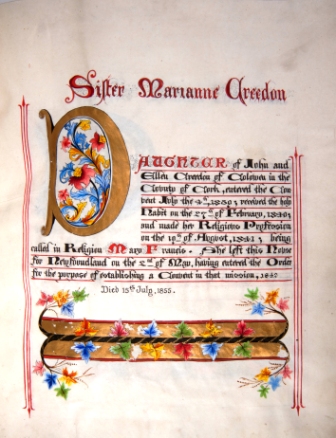 Sister Marianne Creedon
DAUGHTER of John and
Ellen Creedon of Coolowen in the
County of Cork, entered the Con
vent July the 4th, 1839; received the holy
Habit on the 27th of February, 1840;
and made her Religious Profession
on the 19th of August, 1841; being
called in Religion Mary Francis. She left this House
for Newfoundland on the 2nd of May, having entered the Order
for the purpose of establishing a Convent in that mission, 1842
Died 15th July, 1855.